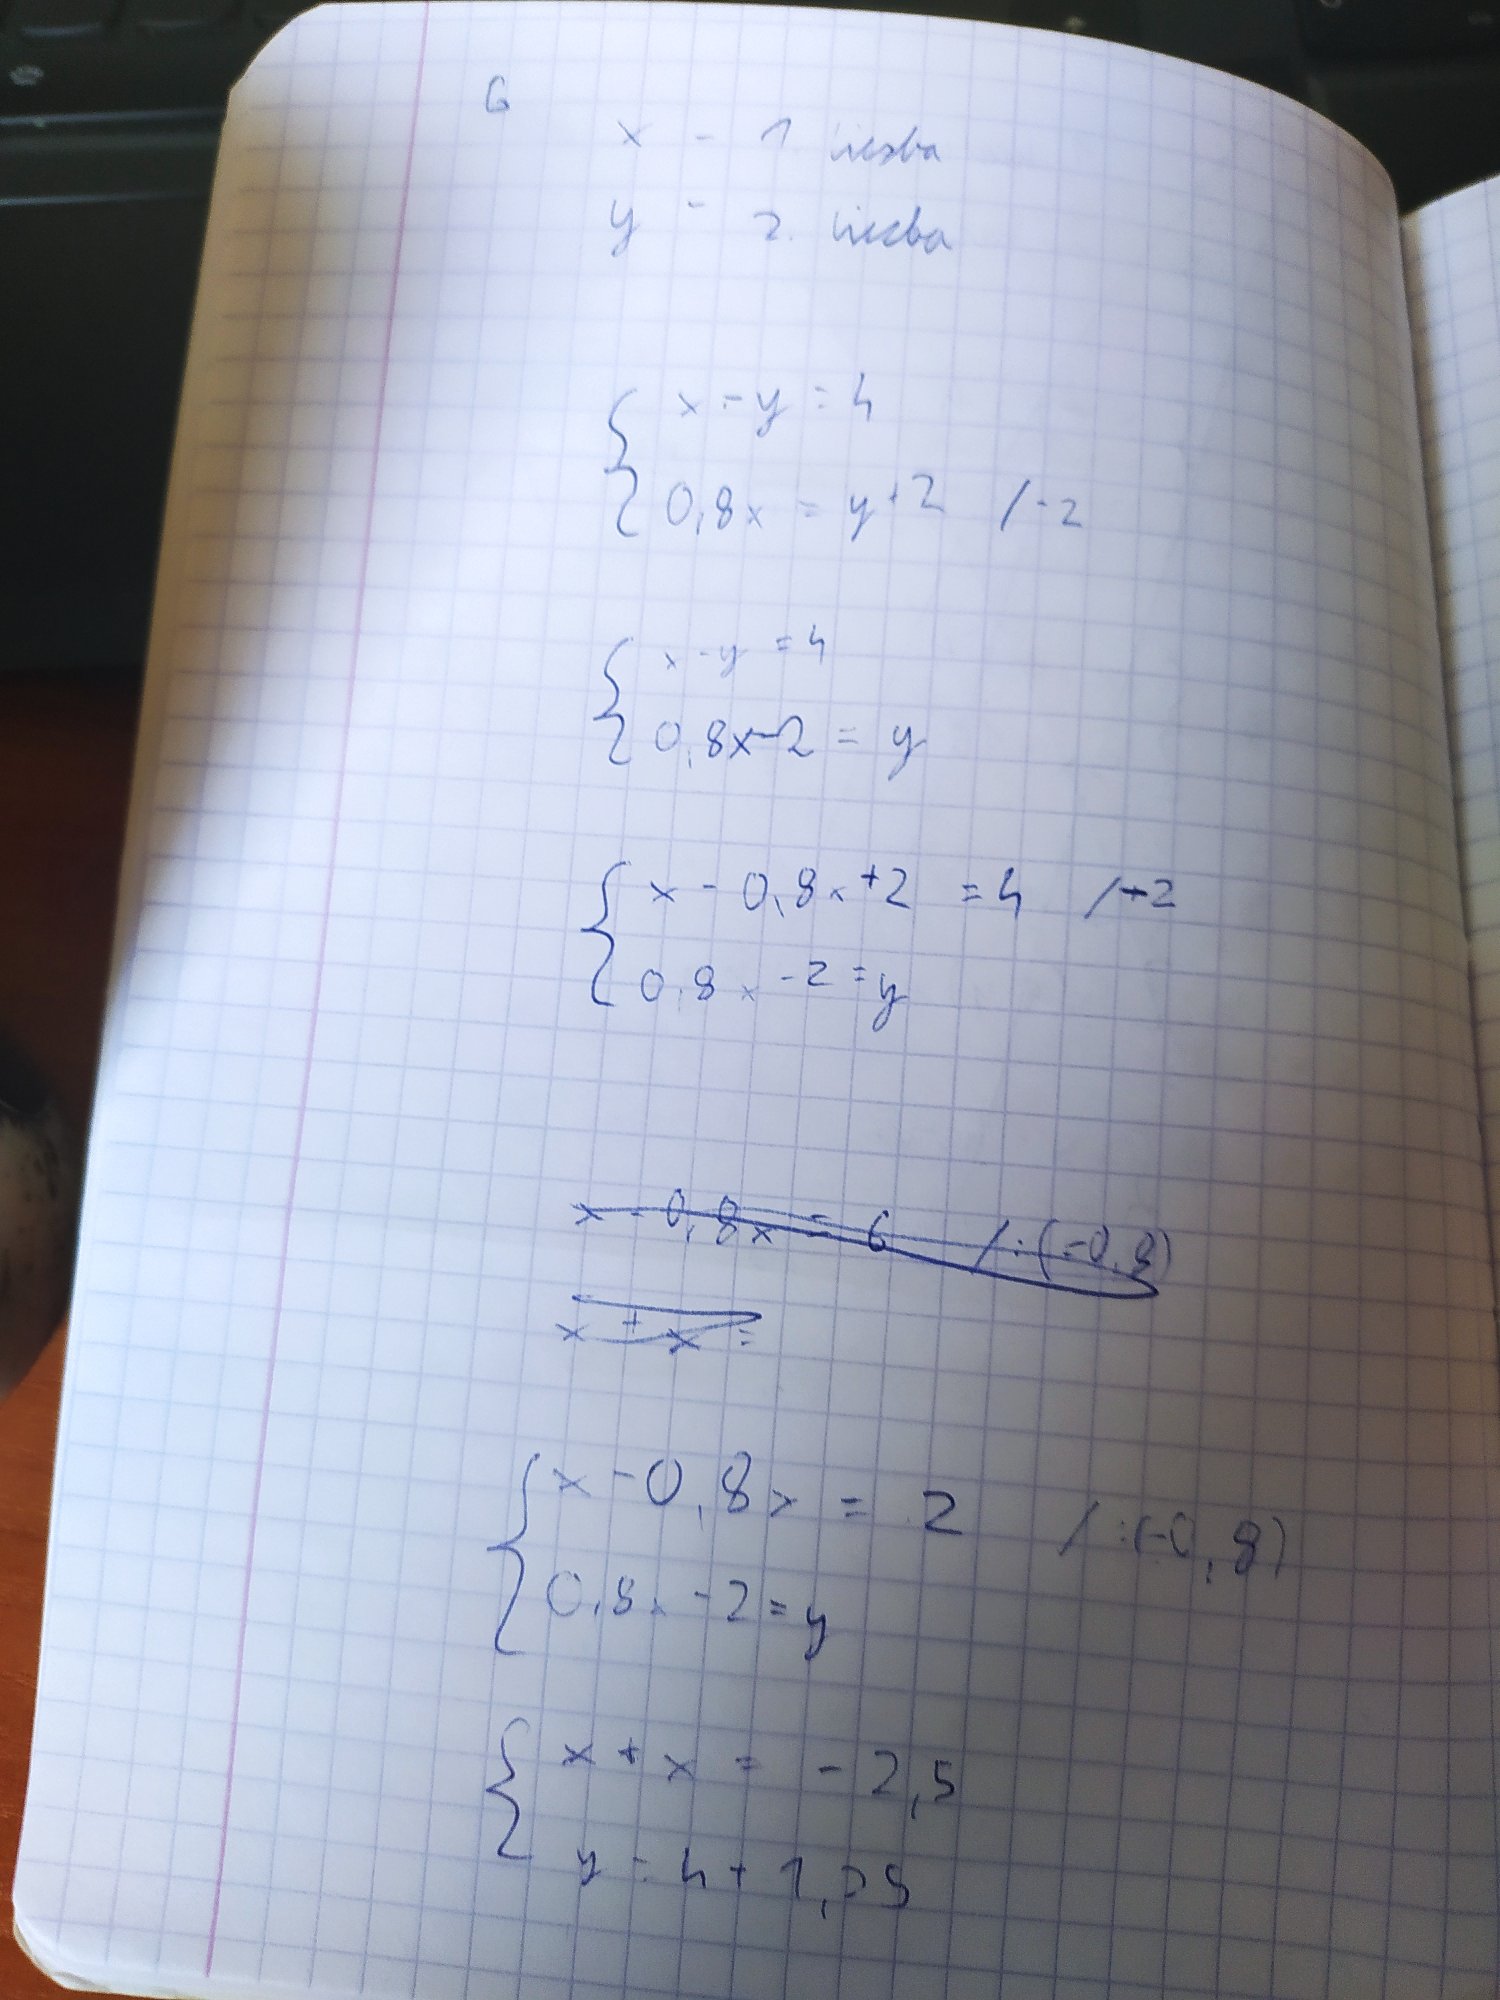 6
x - 1 liczba
y - 2. liczba
x - y = 4
0,8x = y + 2 / -2
x - y = 4
0,8x - 2 = y
x - 0,8x + 2 = 4 / -2
0,8x - 2 = y
x - 0,8x = 6 / :(-0,8)
x + x =
x - 0,8x = 2 / :(-0,8)
0,8x - 2 = y
x + x = -2,5
y = 4 + 1,25